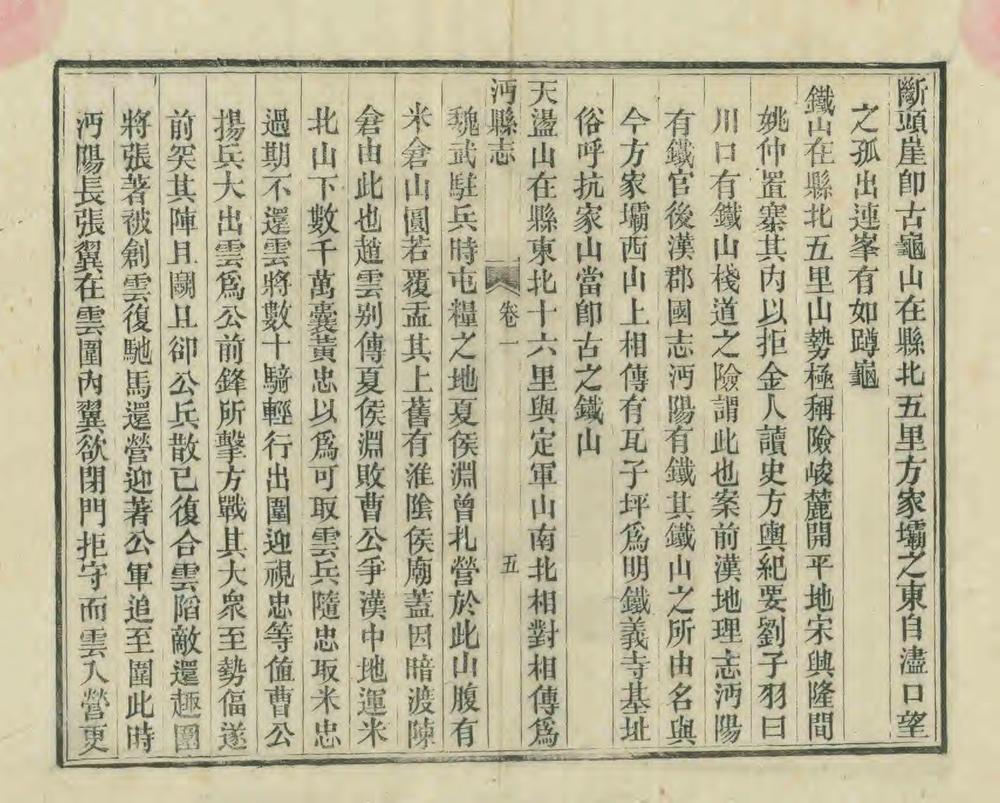 斷頭崖卽古龜山在縣北五里方家壩之東自濜口望
之孤出連峯有如蹲龜
鐵山在縣北五里山勢極稱險峻麓開平地宋興隆間
姚仲置寨其內以拒金人讀史方輿紀要劉子羽曰
川口有鐵山棧道之險謂此也案前漢地理志沔陽
有鐵官後漢郡國志沔陽有鐵其鐵山之所由名與
今方家壩西山上相傳有瓦子坪爲明鐵義寺基址
俗呼抗家山當卽古之鐵山
天盪山在縣東北十六里與定軍山南北相對相傳爲
沔縣志 卷一 五
魏武駐兵時屯糧之地夏侯淵曾扎營於此山腹有
米倉山圓若覆盂其上舊有淮陰侯廟蓋因暗渡陳
倉由此也趙雲別傳夏侯淵敗曹公爭漢中地運米
北山下數千萬囊黃忠以爲可取雲兵隨忠取米忠
過期不還雲將數十騎輕行出圍迎視忠等値曹公
揚兵大出雲爲公前鋒所擊方戰其大衆至勢偪遂
前突其陣且鬭且卻公兵散已復合雲陷敵還趣圍
將張著被創雲復馳馬還營迎著公軍追至圍此時
沔陽長張翼在雲圍內翼欲閉門拒守而雲入營更